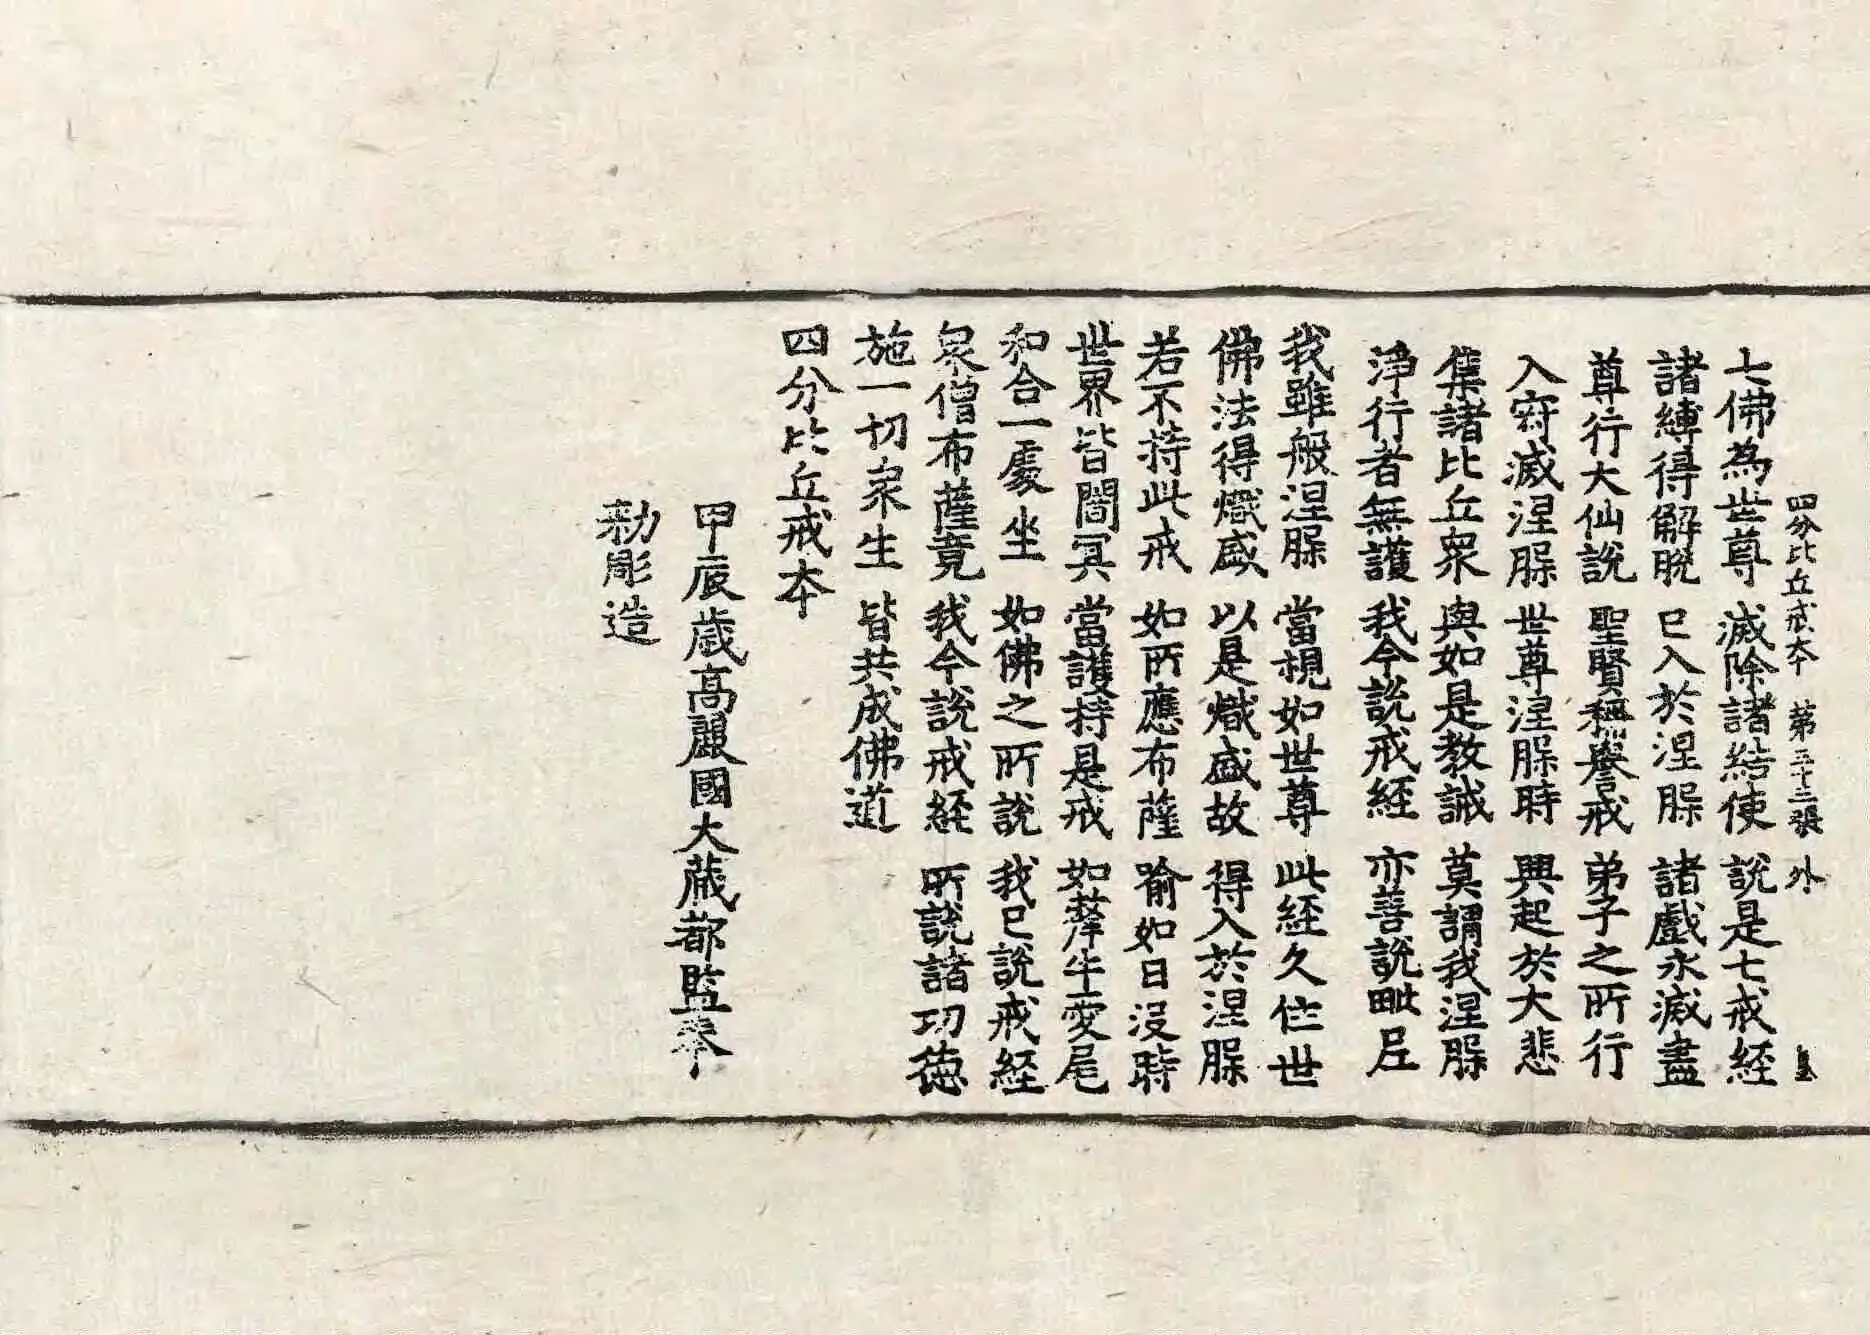 四分比丘戒本 第三十三張 外
七佛為世尊 滅除諸結使 說是七戒經
諸縛得解脫 已入於涅槃 諸戲永滅盡
尊行大仙說 聖賢稱譽戒 弟子之所行
入寂滅涅槃 世尊涅槃時 興起於大悲
集諸比丘衆 與如是教誡 莫謂我涅槃
淨行者無護 我今說戒經 亦善說毗尼
我雖般涅槃 當視如世尊 此經久住世
佛法得熾盛 以是熾盛故 得入於涅槃
若不持此戒 如所應布薩 喻如日没時
世界皆闇冥 當護持是戒 如犛牛愛尾
和合一處坐 如佛之所說 我已說戒經
衆僧布薩竟 我今說戒經 所說諸功德
施一切衆生 皆共成佛道
四分比丘戒本
甲辰歲高麗國大藏都監奉
勅彫造